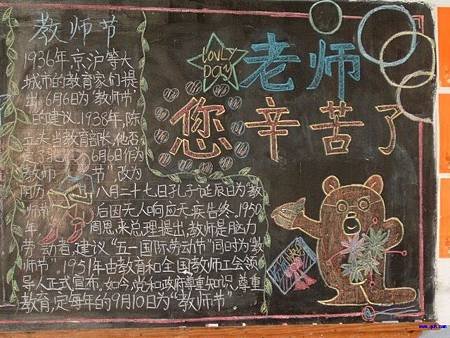 教师节
1936年京沪等大
城市的教育家们提
出6月6日为"教师节"
的建议.1938年,陈
立夫当教育部长,他否
定了把 6月6日作为
教师 节"改为
阴历 八月二十七日孔子诞辰日为"教
师节 后因无人响应无疾告终.1950
年, 周恩来总理提出,教师是脑力
劳动者,建议"五一国际劳动节"同时为"教
师节".1951年由教育和全国教师工会领
导人正式宣布,如今,党和政府尊重知识,尊重
教育,定每年的9月10日为"教师节"
LOVELY
DAY
老师
您辛苦了